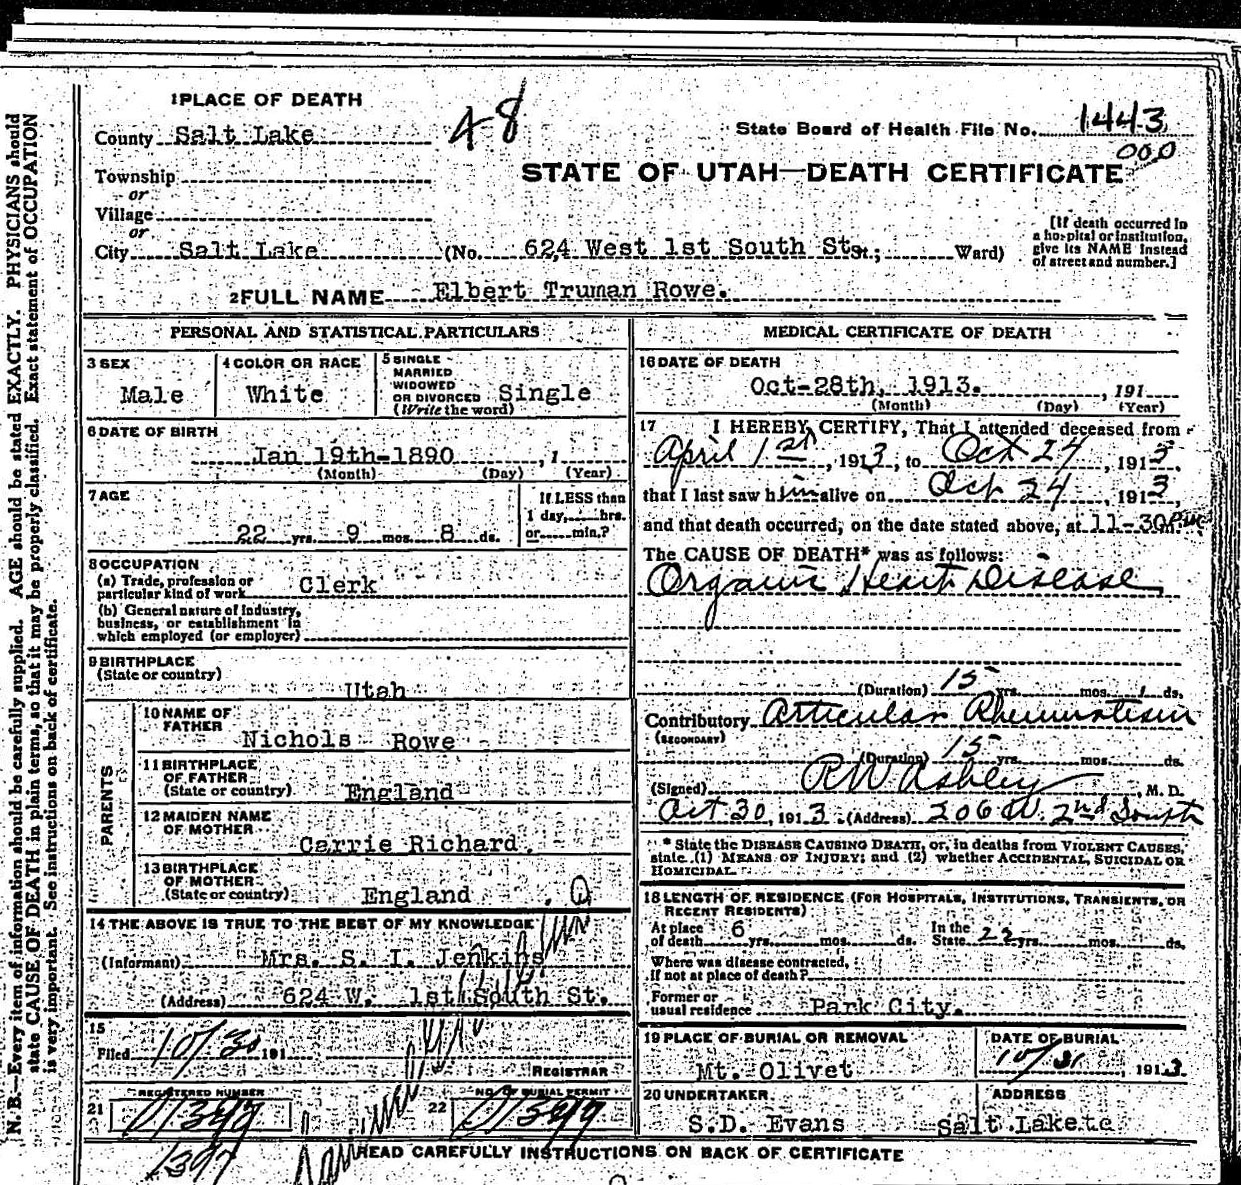 1 PLACE OF DEATH
County Salt Lake
48
State Board of Health File No. 1443
000
STATE OF UTAH—DEATH CERTIFICATE
Township
or
Village
or
City Salt Lake (No. 624 West 1st South St. St.; Ward)
[If death occurred in
a hospital or institution,
give its NAME instead
of street and number.]
2 FULL NAME Elbert Truman Rowe.
PERSONAL AND STATISTICAL PARTICULARS
3 SEX
Male
4 COLOR OR RACE
White
5 SINGLE
MARRIED
WIDOWED
OR DIVORCED
(Write the word)
Single
6 DATE OF BIRTH
Jan 19th-1890 , 1
(Month) (Day) (Year)
7 AGE
22 yrs. 9 mos. 8 ds.
If LESS than
1 day, hrs.
or min.?
8 OCCUPATION
(a) Trade, profession or
particular kind of work Clerk
(b) General nature of industry,
business, or establishment in
which employed (or employer)
9 BIRTHPLACE
(State or country)
Utah
PARENTS
10 NAME OF
FATHER
Nichols Rowe
11 BIRTHPLACE
OF FATHER
(State or country) England
12 MAIDEN NAME
OF MOTHER
Carrie Richard.
13 BIRTHPLACE
OF MOTHER
(State or country) England
14 THE ABOVE IS TRUE TO THE BEST OF MY KNOWLEDGE
(Informant) Mrs. S. I. Jenkins
(Address) 624 W. 1st South St.
15
Filed 10/30 191
REGISTRAR
REGISTERED NUMBER
21
NO. OF BURIAL PERMIT
22
MEDICAL CERTIFICATE OF DEATH
16 DATE OF DEATH
Oct-28th, 1913. , 191
(Month) (Day) (Year)
17 I HEREBY CERTIFY, That I attended deceased from
April 1st, 1913, to Oct 24, 1913,
that I last saw him alive on Oct 24, 1913,
and that death occurred, on the date stated above, at 11-30 P.M.
The CAUSE OF DEATH* was as follows:
Organic Heart Disease
(Duration) 15 yrs. mos. ds.
Contributory Articular Rheumatism
(SECONDARY)
(Duration) 15 yrs. mos. ds.
(Signed) R W Ashley, M. D.
Oct 30, 1913. (Address) 206 W. 2nd South
* State the DISEASE CAUSING DEATH, or, in deaths from VIOLENT CAUSES,
state (1) MEANS OF INJURY; and (2) whether ACCIDENTAL, SUICIDAL OR
HOMICIDAL.
18 LENGTH OF RESIDENCE (FOR HOSPITALS, INSTITUTIONS, TRANSIENTS, OR
RECENT RESIDENTS)
At place
of death 6 yrs. mos. ds.
In the
State 22 yrs. mos. ds.
Where was disease contracted,
If not at place of death?
Former or
usual residence Park City.
19 PLACE OF BURIAL OR REMOVAL
Mt. Olivet
DATE OF BURIAL
10/31 1913
20 UNDERTAKER
S.D. Evans
ADDRESS
Salt Lake
READ CAREFULLY INSTRUCTIONS ON BACK OF CERTIFICATE
N. B.—Every item of information should be carefully supplied. AGE should be stated EXACTLY. PHYSICIANS should
state CAUSE OF DEATH in plain terms, so that it may be properly classified. Exact statement of OCCUPATION
is very important. See instructions on back of certificate.